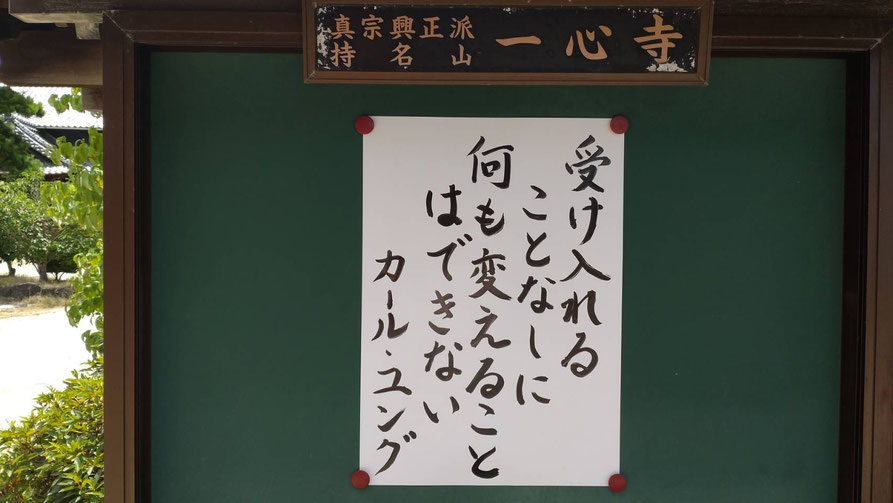 真宗興正派
持名山
一心寺
受け入れる
ことなしに
何も変えること
はできない
カール・ユング